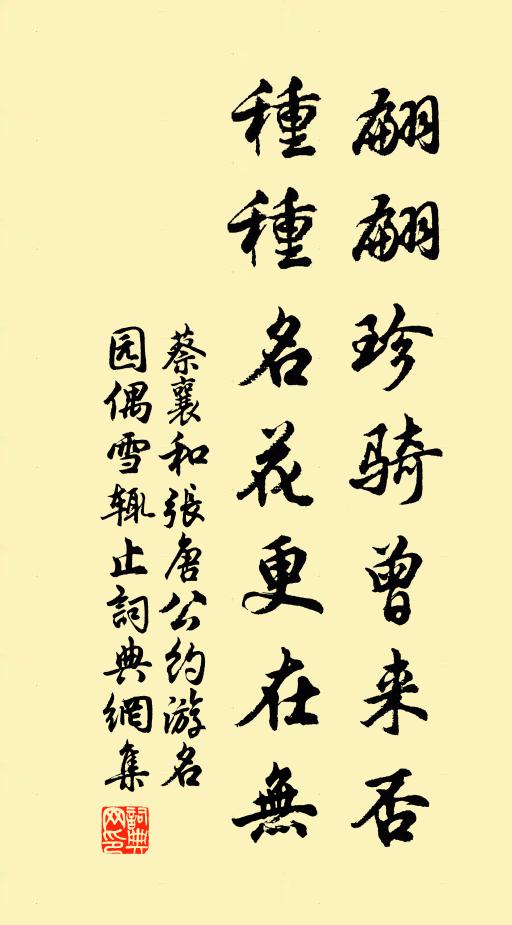 翩翩珍骑曾来否
種種名花更在無
蔡襄和張唐公约游名
园偶雪辄止詞典網集
詞典
网印